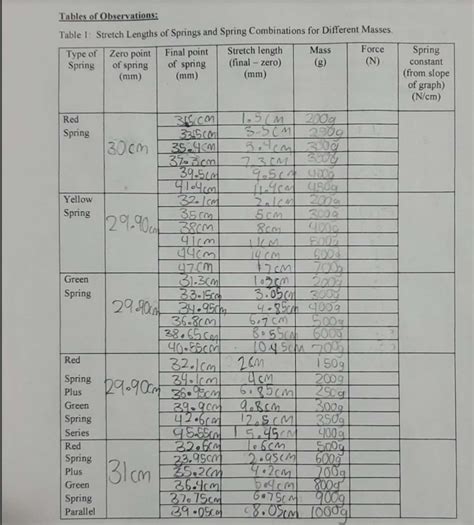 Tables of Observations:
Table 1: Stretch Lengths of Springs and Spring Combinations for Different Masses.
Type of Spring Zero point of spring (mm) Final point of spring (mm) Stretch length (final – zero) (mm) Mass (g) Force (N) Spring constant (from slope of graph) (N/cm)
Red Spring 30cm
1.5cm 200g
33.5cm 3.5cm 250g
35.4cm 5.4cm 300g
37.3cm 7.3cm
39.5cm 9.5cm 400g
41.4cm 11.4cm 450g
Yellow Spring 29.90cm
32.1cm 2.1cm 200g
35cm 5cm 300g
38cm 8cm 400g
41cm 11cm 500g
44cm 14cm 600g
47cm 17cm 700g
Green Spring 29.90cm
31.3cm 200g
33.15cm 3.05cm 300g
34.95cm 4.85cm 400g
36.8cm 6.7cm 500g
38.65cm 8.55cm 600g
40.85cm 10.45cm 700g
Red Spring Plus Green Spring Series 29.90cm
32.1cm 2cm 150g
34.1cm 4cm 200g
36.95cm 6.85cm 250g
39.9cm 9.8cm 300g
42.6cm 12.5cm 350g
45.55cm 15.45cm 400g
Red Spring Plus Green Spring Parallel 31cm
32.6cm 1.6cm 500g
23.95cm 2.95cm 600g
35.2cm 4.2cm 700g
36.4cm 5.4cm 800g
37.75cm 6.75cm 900g
39.05cm 8.05cm 1000g